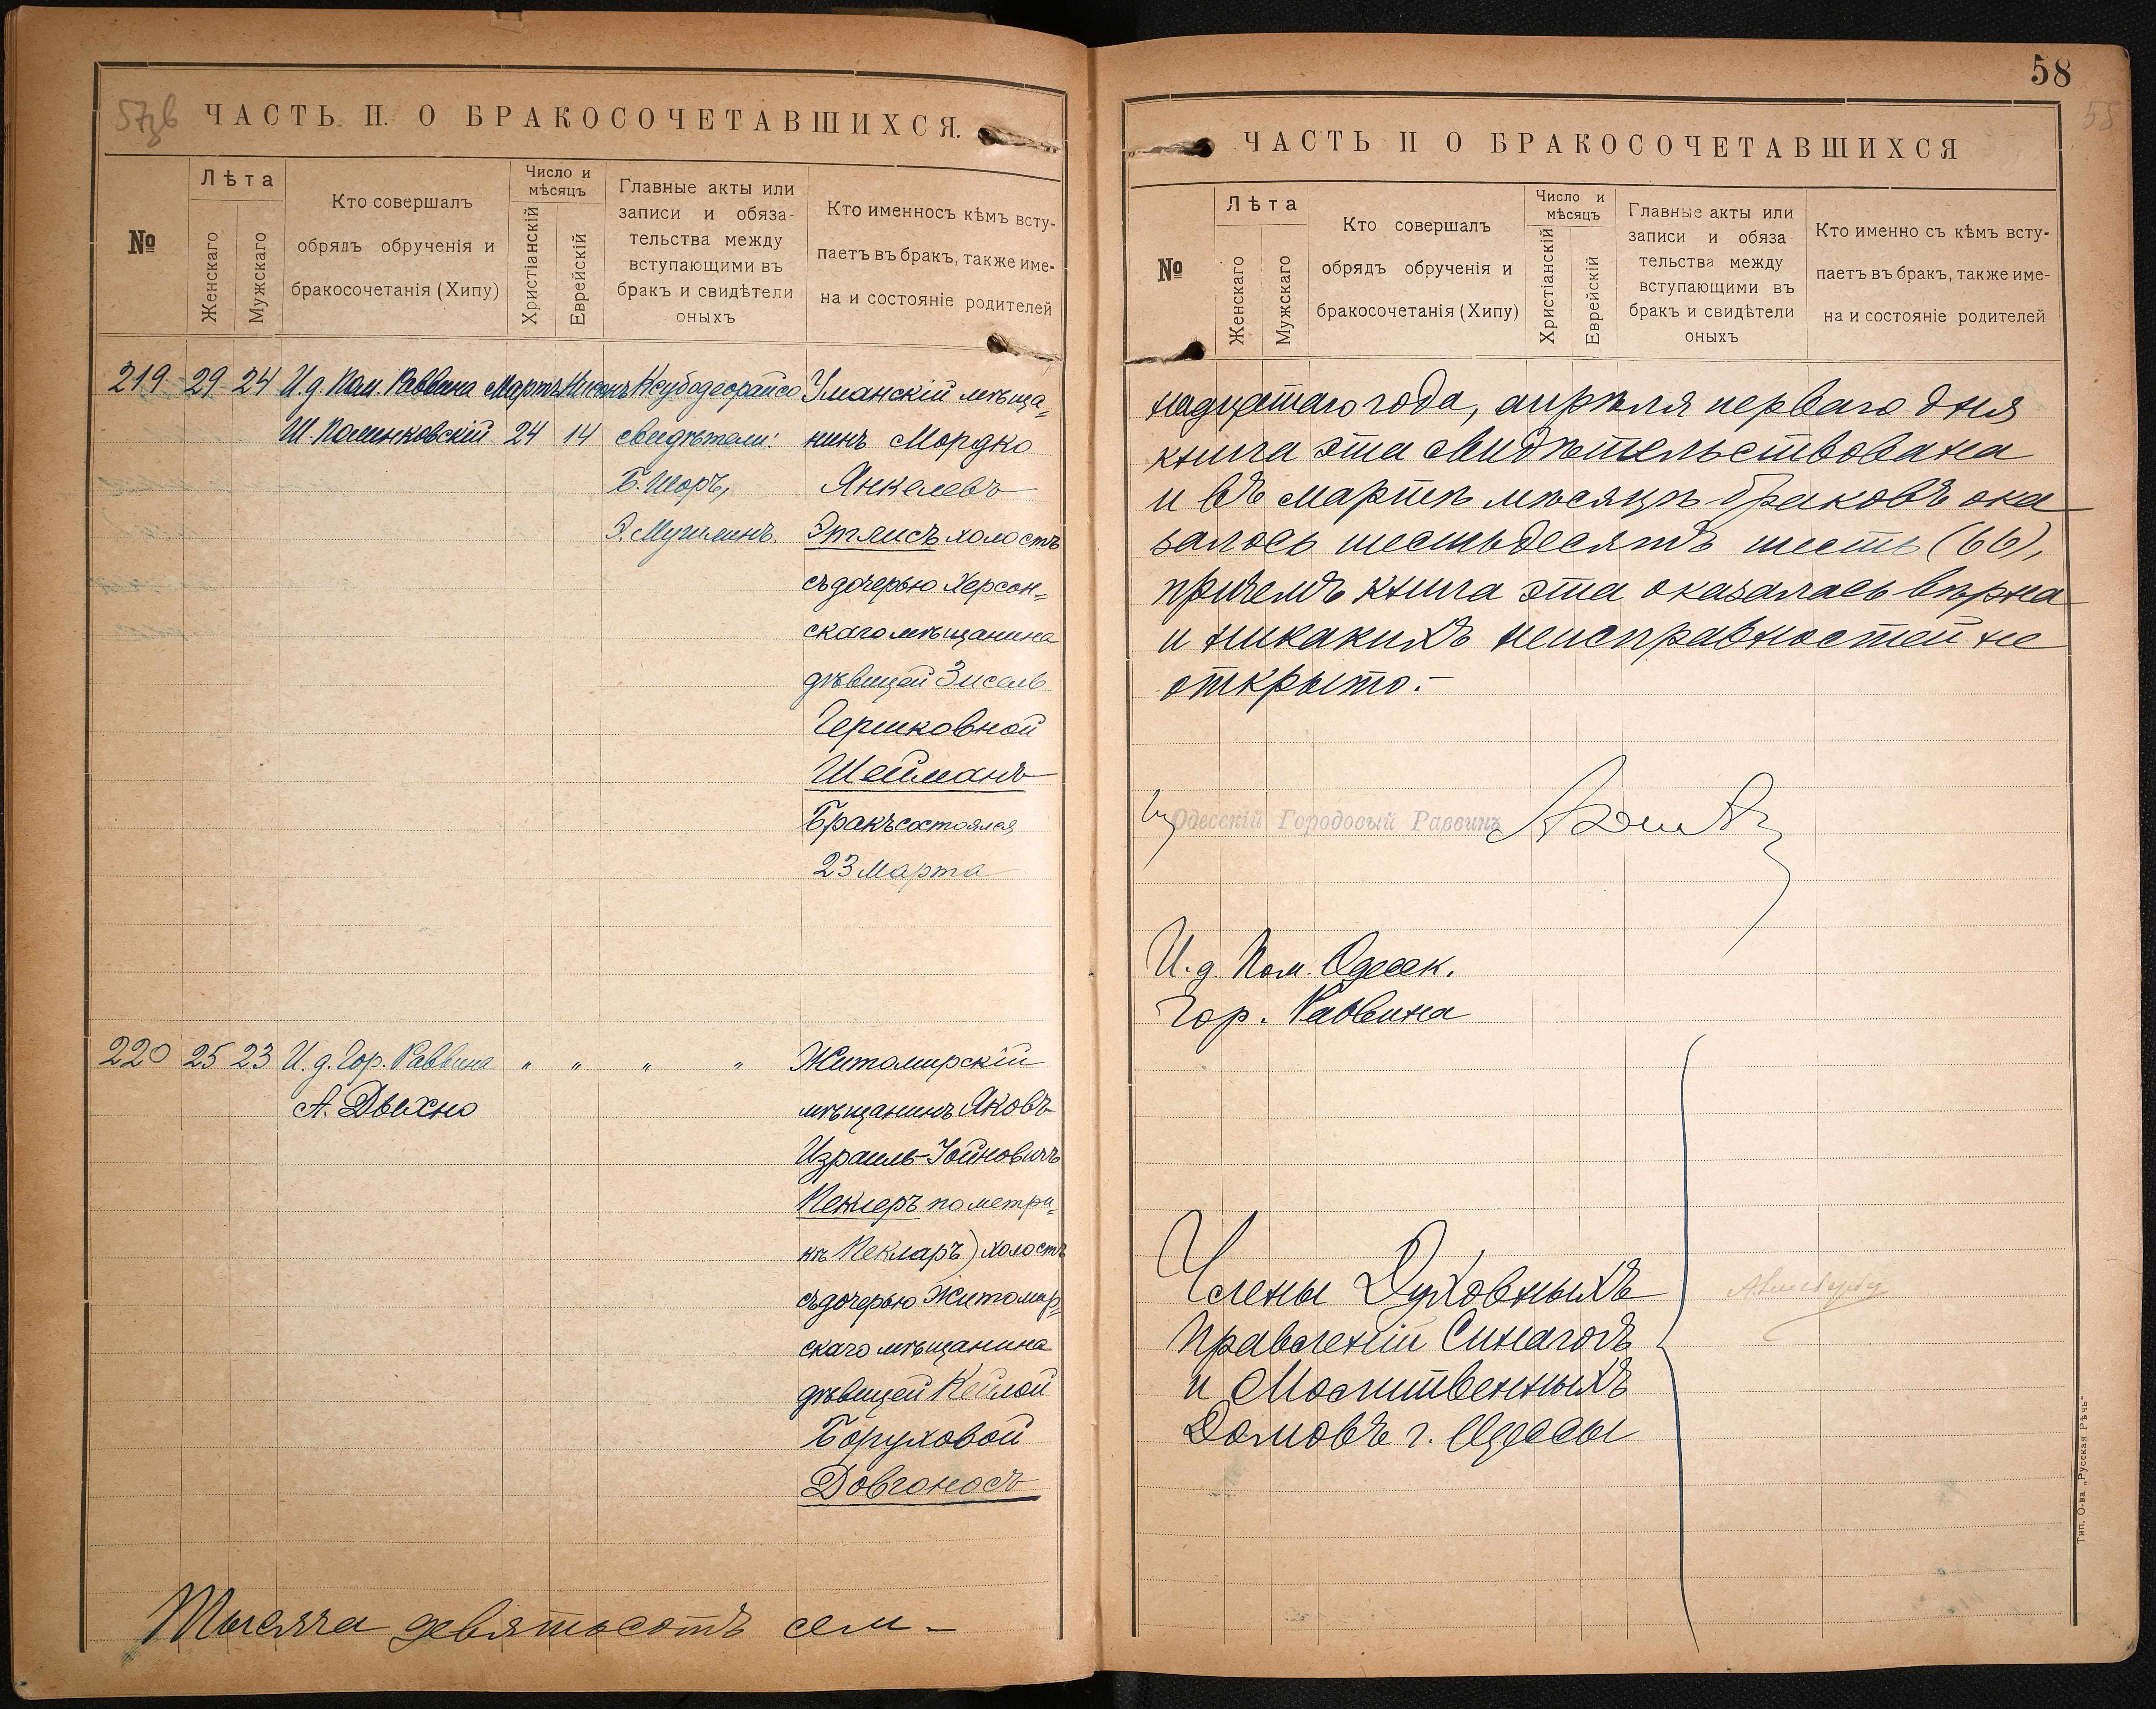 57зв
ЧАСТЬ II. О БРАКОСОЧЕТАВШИХСЯ.
№
Лѣта
Женскаго
Мужскаго
Кто совершалъ
обрядъ обрученія и
бракосочетанія (Хипу)
Число и
мѣсяцъ
Христіанскій
Еврейскій
Главные акты или
записи и обяза-
тельства между
вступающими въ
бракъ и свидѣтели
оныхъ
Кто именносъ кѣмъ всту-
паетъ въ бракъ, также име-
на и состояніе родителей
219 29 24 И.д. Пом. Раввина Мартъ Нисонъ Ксубодеорайсо Уманскій мѣща-
Ш. Полинковскій 24 14 свидѣтели: нинъ Мордко
Б. Шоръ, Янкелевъ
Э. Мучникъ. Этлисъ холостъ
съ дочерью Херсон-
скаго мѣщанина
дѣвицей Зисель
Гершковной
Шейманъ
Бракъ состоялся
23 Марта
220 25 23 И.д. Гор. Раввина " " " " Житомирскій
А. Дыхно мѣщанинъ Яковъ
Израиль-Іойновичъ
Пекеръ по метри-
кѣ Пекларъ) холостъ
съ дочерью Житомир-
скаго мѣщанина
дѣвицей Кейлой
Боруховой
Довгоносъ
Тысяча девятьсотъ сем-
58
58
ЧАСТЬ II О БРАКОСОЧЕТАВШИХСЯ
№
Лѣта
Женскаго
Мужскаго
Кто совершалъ
обрядъ обрученія и
бракосочетанія (Хипу)
Число и
мѣсяцъ
Христіанскій
Еврейскій
Главные акты или
записи и обяза
тельства между
вступающими въ
бракъ и свидѣтели
оныхъ
Кто именно съ кѣмъ всту-
паетъ въ бракъ, также име-
на и состояніе родителей
надцатаго года, апрѣля перваго дня
книга эта свидѣтельствована
и въ мартѣ мѣсяцѣ браковъ ока
залось шестьдесятъ шесть (66),
причемъ книга эта оказалась вѣрна
и никакихъ неисправностей не
открыто.-
Одесскій Городовый Раввинъ
И.д. Пом. Одесск.
Гор. Раввина
Члены Духовныхъ
Правленій Синагогъ
и Молитвенныхъ
Домовъ г. Одессы
Тип. О-ва „Русская Рѣчь"